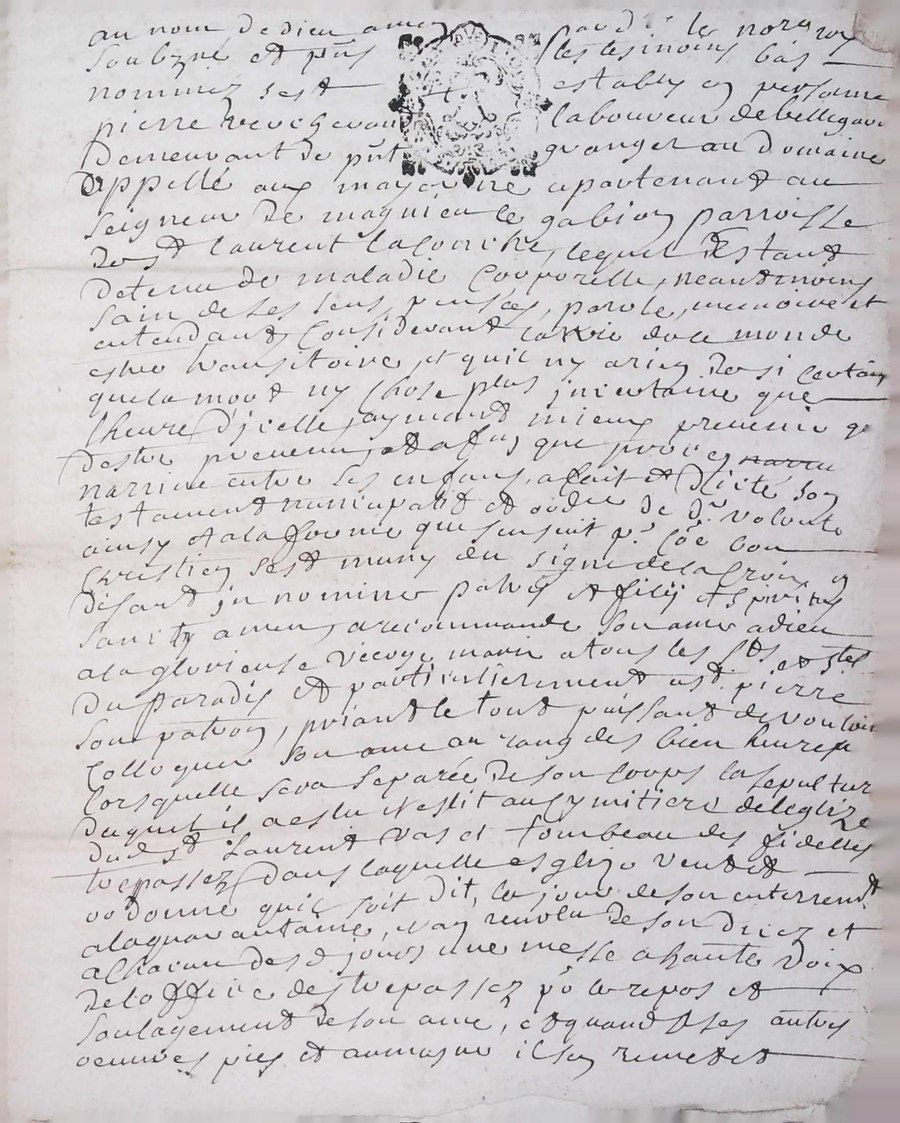 au nom de dieu amen pardt le nore roy
soubzné et puis les tesmoins bas
nommez sest estably en personne
pierre laboureur de bellegarde
demeurant de pnt granger au domaine
appellé aux apartenant au
seigneur de magnieu le gabion parroisse
de st laurent laconche, lequel estant
detenu de maladie corporelle, neantmoins
sain de ses sens, pensées, parole, memoire et
entendant, considerant la vie de ce monde
estre transitoire, et quil ny a rien de si certain
que la mort ny chose plus jncertaine que
lheure djcelle, aymant mieux prevenir q
destre prevenu, et affin que proces
narrive entre ses enfans, a fait et dicté son
testament nuncupatif et ordre de dre volonté
ainsy et a la forme que sensuit pr coe bon
chrestien sest muny du signe de la croix en
disant jn nomine patris et filij et spiritus
sancty amen, a recommandé son ame a dieu
a la glorieuse vierge marie a tous les sts et stes
du paradis et particulierement a st pierre
son patron, priant le tout puissant de vouloir
colloquer son ame au rang des bien heureux
lorsquelle sera separée de son corps la sepultur
duquel il a eslu au symitiere de leglize
dud st laurent vas et tombeau des fidelles
trepassez, dans laquelle esglize veut et
ordonne quil soit dit, le jour de son enterremt
a la quarantaine, et an revolu de son et
a chacun des d jours une messe a haute voix
de loffice des trepassez pr le repos et
soulagement de son ame, et quand a ses autres
oeuvres pies et aumosne il sen remet